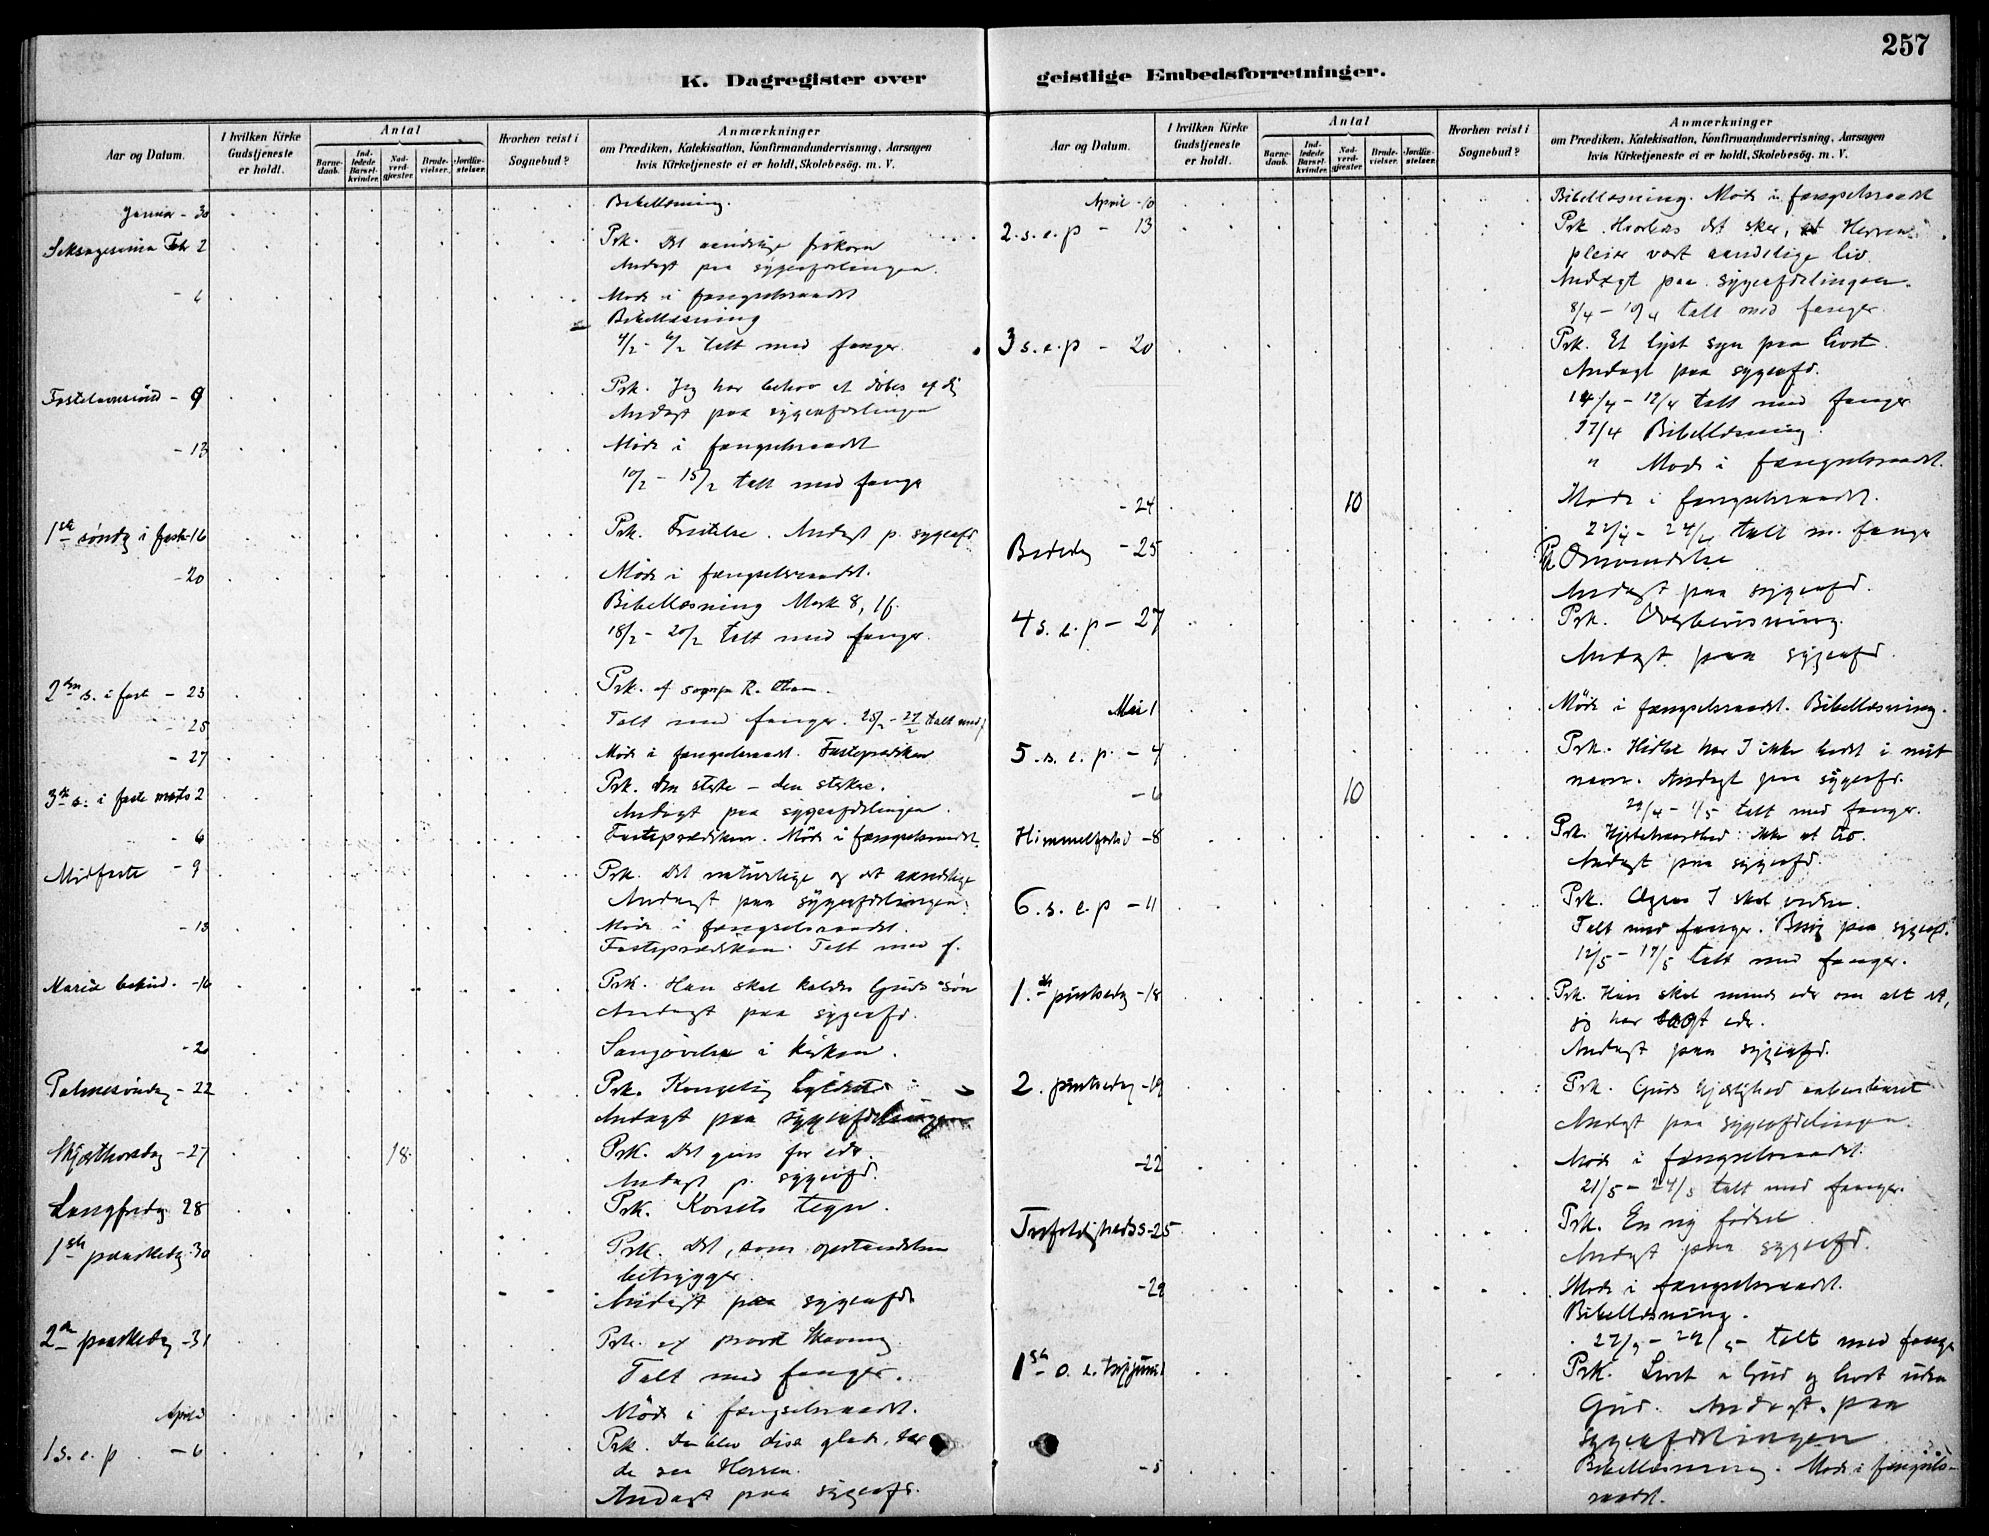 257
K. Dagregister over
geistlige Embedsforretninger.
Aar og Datum.
I hvilken Kirke Gudstjeneste er holdt.
Antal
Barnedaab.
Indledede Barselkvinder.
Nadverdgjester.
Brudevielser.
Jordfæstelser.
Hvorhen reist i Sognebud?
Anmærkninger
om Prædiken, Katekisation, Konfirmandundervisning, Aarsagen
hvis Kirketjeneste ei er holdt, Skolebesøg. m. V.
Januar - 30 Bibellæsning.
Seksagesima Feb 2 Prk. Det aandelige frøkorn
Andagt paa sygeafdelingen.
- 6 Møde i fængselsraadet
Bibellæsning
4/2 - 6/2 talt med fanger.
Fastelavnssønd - 9 Prk. Jeg har behov at døbes af dig
Andagt paa sygeafdelingen
- 13 Møde i fængselsraadet
10/2 - 15/2 talt med fange
1ste søndg i faste - 16 Prk. Fristelse. Andagt p. sygeafd
- 20 Møde i fængselsraadet.
Bibellæsning Mark 8, 1f.
18/2 - 20/2 talt med fanger.
2den s. i fast - 23 Prk. af sognepr R. Olsen.
- 25 Talt med fanger. 25/2 - 27/2 talt med f
- 27 Møde i fængselsraadet. Fasteprædiken
3de s. i faste marts 2 Prk. Den sterke - den sterkere.
Andagt paa sygeafdelingen.
- 6 Fasteprædiken. Møde i fængselsraadet.
Midfaste - 9 Prk. Det naturlige og det aandelige
Andagt paa sygeafdelingen.
- 13 Møde i fængselsraadet.
Fasteprædiken. Talt med f.
Mariæ bebud. - 16 Prk. Han skal kaldes Guds søn
Andagt paa sygeafd.
- 20 Sangøvelse i kirken.
Palmesøndag - 22 Prk. Kongelig
Andagt paa sygeafdelingen
Skjærthorsdag - 27 18 Prk. Det gives for eder.
Andagt p. sygeafd.
Langfredag 28 Prk. Korsets tegn.
1ste paaskedag - 30 Prk. Det, som opstandelsen
betrygger.
Andagt paa sygeafd.
2den paaskedag - 31 Prk. af provst
Talt med fanger.
April Møde i fængselsraadet.
1 s. e. p. - 6 Prk. Da blev disc. glade, da
de saa Herren.
Andagt paa sygeafd.
Aar og Datum.
I hvilken Kirke Gudstjeneste er holdt.
Antal
Barnedaab.
Indledede Barselkvinder.
Nadverdgjester.
Brudevielser.
Jordfæstelser.
Hvorhen reist i Sognebud?
Anmærkninger
om Prædiken, Katekisation, Konfirmandundervisning, Aarsagen
hvis Kirketjeneste ei er holdt, Skolebesøg. m. V.
April - 10 Bibellæsning. Møde i fængselsraadet
2. s. e. p - 13 Prk. Hvorledes det sker, at Herren
pleier vort aandelige liv.
Andagt paa sygeafdelingen.
8/4 - 10/4 talt med fanger.
3 s. e. p - 20 Prk. Et lyst syn paa livet.
Andagt paa sygeafd.
14/4 - 19/4 talt med fanger
17/4 Bibellæsning.
" Møde i fængselsraadet.
- 24 10 Møde i fængselsraadet.
22/4 - 24/4 talt m. fange
Bededag - 25 Prk Omvendelse
Andagt paa sygeafd.
4 s. e. p - 27 Prk. Overbevisning.
Andagt paa sygeafd.
Mai 1 Møde i fængselsraadet. Bibellæsning.
5. s. e. p. - 4 Prk. Hidtil har I ikke bedt i mit
navn. Andagt paa sygeafd.
- 6 10 29/4 - 1/5 talt med fanger.
Himmelfartsd - 8 Prk. Hjertehaardhed: ikke at tro.
Andagt paa sygeafd.
6. s. e. p - 11 Prk. Ogsaa I skal vidne.
Talt med fanger. Besøg paa sygeafd.
12/5 - 17/5 talt med fanger.
1.ste pinsedag - 18 Prk. Han skal minde eder om alt det,
jeg har sagt eder.
Andagt paa sygeafd.
2. pinsedag - 19 Prk. Guds kjærlighed aabenbaret
Andagt paa sygeafdelingen.
- 22 Møde i fængselsraadet.
21/5 - 24/5 talt med fanger.
Trefoldighedss - 25 Prk. En ny fødsel
Andagt paa sygeafd.
- 29 Møde i fængselsraadet.
Bibellæsning.
27/5 - 29/5 - talt med fange
1ste s. e. tref juni 1 Prk. Livet i Gud og livet uden
Gud. Andagt paa
sygeafdelingen
- 5 Bibellæsning. Møde i fængsels-
raadet.